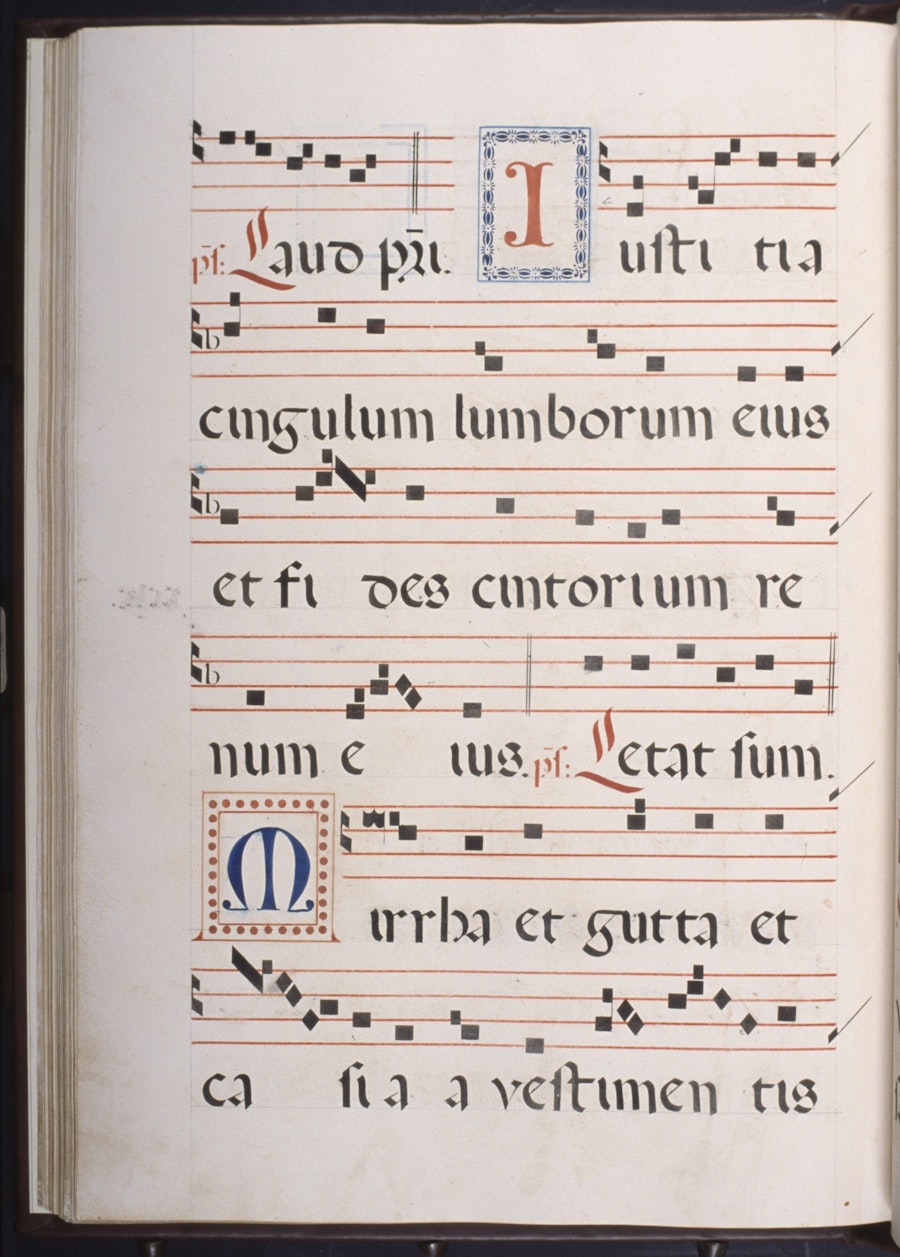 ps: Laud pri. Iusti tia
cingulum lumborum eius
et fi des cintorium re
num e ius. ps: Letat sum.
Mirrha et gutta et
ca si a a vestimen tis